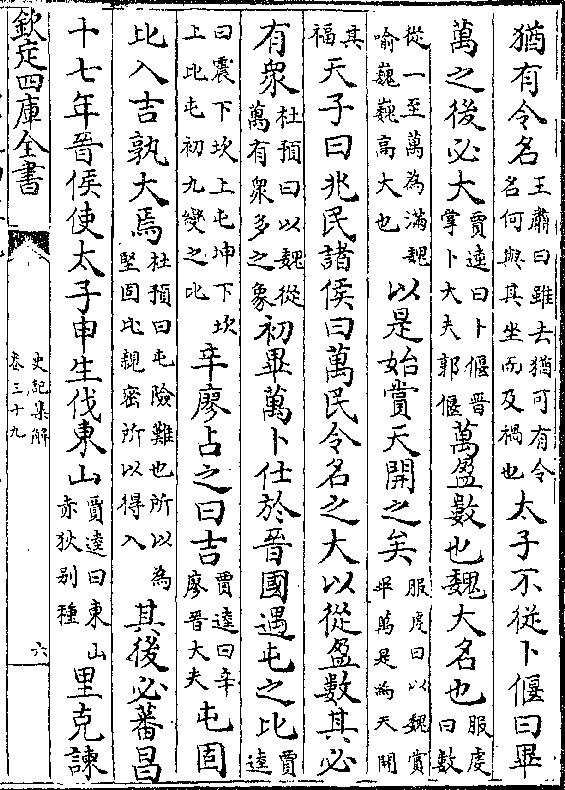 猶有令名王肅曰雖去猶可有令名何與其坐而及禍也太子不從卜偃曰畢
萬之後必大賈逵曰卜偃晉掌卜大夫郭偃萬盈數也魏大名也服虔曰數
從一至萬為滿魏喻巍巍高大也以是始賞天開之矣服虔曰以魏賞畢萬是為天開
其福天子曰兆民諸侯曰萬民今名之大以從盈數其必
有衆杜預曰以魏從萬有衆多之象初畢萬卜仕於晉國遇屯之比賈逵
曰震下坎上屯坤下坎上比屯初九變之比辛廖占之曰吉賈逵曰辛廖晉大夫屯固
比入吉孰大焉杜預曰屯險難也所以為堅固比親宻所以得入其後必蕃昌
十七年晉侯使太子申生伐東山賈逵曰東山赤狄别種里克諫
欽定四庫全書
史記集解
卷三十九
六